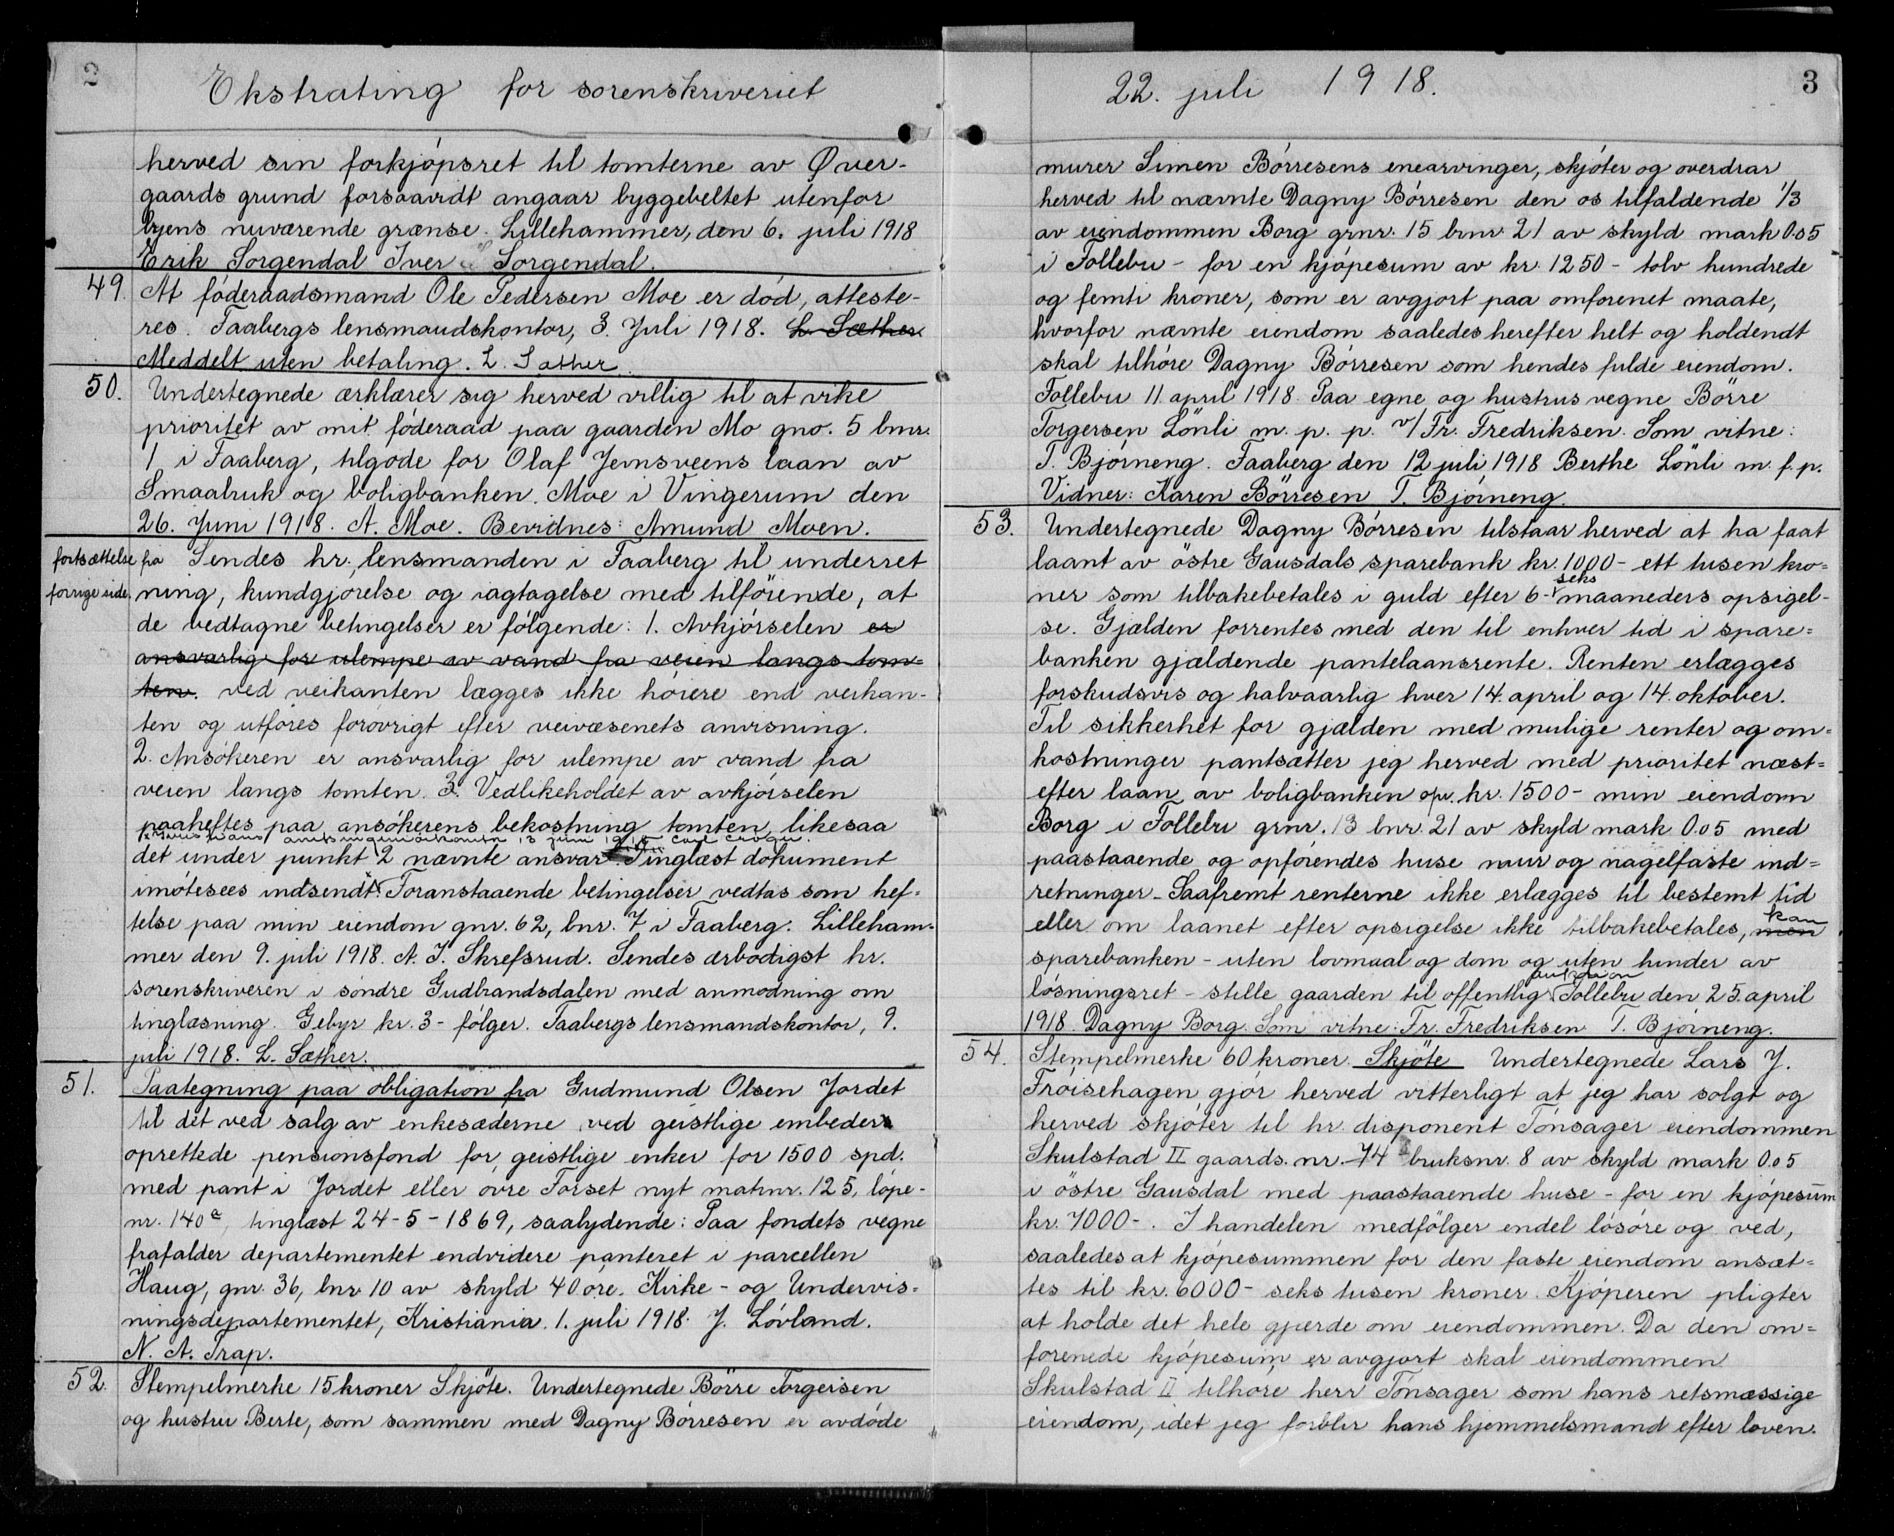 2
Ekstrating for sorenskriveriet
herved sin forkjøpsret til tomterne av Øver-
gaards grund forsaavidt angaar byggebeltet utenfor
byens nuværende grænse. Lillehammer, den 6. juli 1918
Erik Sorgendal Iver Sorgendal.
49. At föderaadsmand Ole Pedersen Moe er död, atteste-
res. Faabergs lensmandskontor, 3. Juli 1918. L. Sæther
Meddelt uten betaling. L. Sæther.
50. Undertegnede ærklærer sig herved villig til at vike
prioritet av mit föderaad paa gaarden Mo gno. 5 bnr.
1 i Faaberg, tilgode for Olaf Jevnsveens laan av
Smaabruk og boligbanken. Moe i Vingerum den
26. Juni 1918. A. Moe. Bevidnes: Amund Moen.
fortsættelse fra Sendes hr. lensmanden i Faaberg til underret
forrige side. ning, kundgjörelse og iagtagelse med tilföiende, at
de vedtagne betingelser er fölgende: 1. Avkjörselen er
ansvarlig for ulempe av vand fra veien langs tom-
ten. ved veikanten lægges ikke höiere end veikan-
ten og utföres forövrigt efter veivæsenets anvisning.
2. Ansökeren er ansvarlig for ulempe av vand fra
veien langs tomten. 3. Vedlikeholdet av avkjörselen
paaheftes paa ansökerens bekostning tomten, likesaa
det under punkt 2 nævnte ansvar. Tinglæst dokument
imötesees indsendt. Foranstaaende betingelser vedtas som hef-
telse paa min eiendom gnr. 62, bnr. 7 i Faaberg. Lilleham-
mer den 9. juli 1918. A. J. Skrefsrud. Sendes ærbödigst hr.
sorenskriveren i söndre Gudbrandsdalen med anmodning om
tinglæsning. Gebyr kr. 3- fölger. Faabergs lensmandskontor, 9.
juli 1918. L. Sæther.
51. Paategning paa obligation fra Gudmund Olsen Jordet
til det ved salg av enkesæderne ved geistlige embeder
oprettede pensionsfond for geistlige enker for 1500 spd.
med pant i Jordet eller övre Forset nyt matrnr. 125, löpe-
nr. 140a, tinglæst 24-5-1869, saalydende: Paa fondets vegne
frafalder departementet endvidere panteret i parcellen
Haug, gnr. 36, bnr. 10 av skyld 40 öre. Kirke- og Undervis-
ningsdepartementet, Kristiania. 1. juli 1918. J. Lövland.
N. A. Trap.
52. Stempelmerke 15 kroner Skjöte. Undertegnede Börre Torgersen
og hustru Berte, som sammen med Dagny Börresen er avdöde
22. juli 1918.
3
murer Simen Börresens enearvinger, skjöter og overdrar
herved til nævnte Dagny Börresen den os tilfaldende 1/3
av eiendommen Borg grnr. 15 brnr. 21 av skyld mark 0.05
i Follebu - for en kjöpesum av kr. 1250- tolv hundrede
og femti kroner, som er avgjort paa omforenet maate,
hvorfor nævnte eiendom saaledes herefter helt og holdendt
skal tilhöre Dagny Börresen som hendes fulde eiendom.
Follebu 11. april 1918. Paa egne og hustrus vegne Börre
Torgersen Lönli m. p. p. v/ Fr. Fredriksen. Som vitne:
T. Bjöineng. Faaberg den 12 juli 1918 Berthe Lönli m. f. p.
Vidner: Karen Börresen T. Bjöineng.
53. Undertegnede Dagny Börresen tilstaar herved at ha faat
laant av östre Gausdals sparebank kr. 1000- ett tusen kro-
seks
ner som tilbakebetales i guld efter 6- maaneders opsigel-
se. Gjælden forrentes med den til enhver tid i spare-
banken gjældende pantelaansrente. Renten erlægges
forskudsvis og halvaarlig hver 14. april og 14. oktober.
Til sikkerhet for gjælden med mulige renter og om-
kostninger pantsætter jeg herved med prioritet næst-
efter laan av boligbanken opr. kr. 1500- min eiendom
Borg i Follebu grnr. 13 bnr. 21 av skyld mark 0.05 med
paastaaende og opförendes huse mur og nagelfaste ind-
retninger. Saafremt renterne ikke erlægges til bestemt tid
kan
eller om laanet efter opsigelse ikke tilbakebetales, men
sparebanken - uten lovmaal og dom og uten hinder av
auktion
lösningsret - stille gaarden til offentlig Follebu den 25. april
1918. Dagny Borg. Som vitne: Fr. Fredriksen T. Bjöineng.
54. Stempelmerke 60 kroner. Skjöte Undertegnede Lars J.
Fröisehagen gjör herved vitterligt at jeg har solgt og
herved skjöter til hr. disponent Tönsager eiendommen
Skulstad II gaards. nr. 74 bruksnr. 8 av skyld mark 0.05
i östre Gausdal med paastaaende huse - for en kjöpesum
kr. 7000-. I handelen medfölger endel lösöre og ved,
saaledes at kjöpesummen for den faste eiendom ansæt-
tes til kr. 6000- seks tusen kroner. Kjöperen pligter
at holde det hele gjærde om eiendommen. Da den om-
forenede kjöpesum er avgjort skal eiendommen
Skulstad II tilhöre herr Tönsager som hans retsmæssige
eiendom, idet jeg forblir hans hjemmelsmand efter loven.